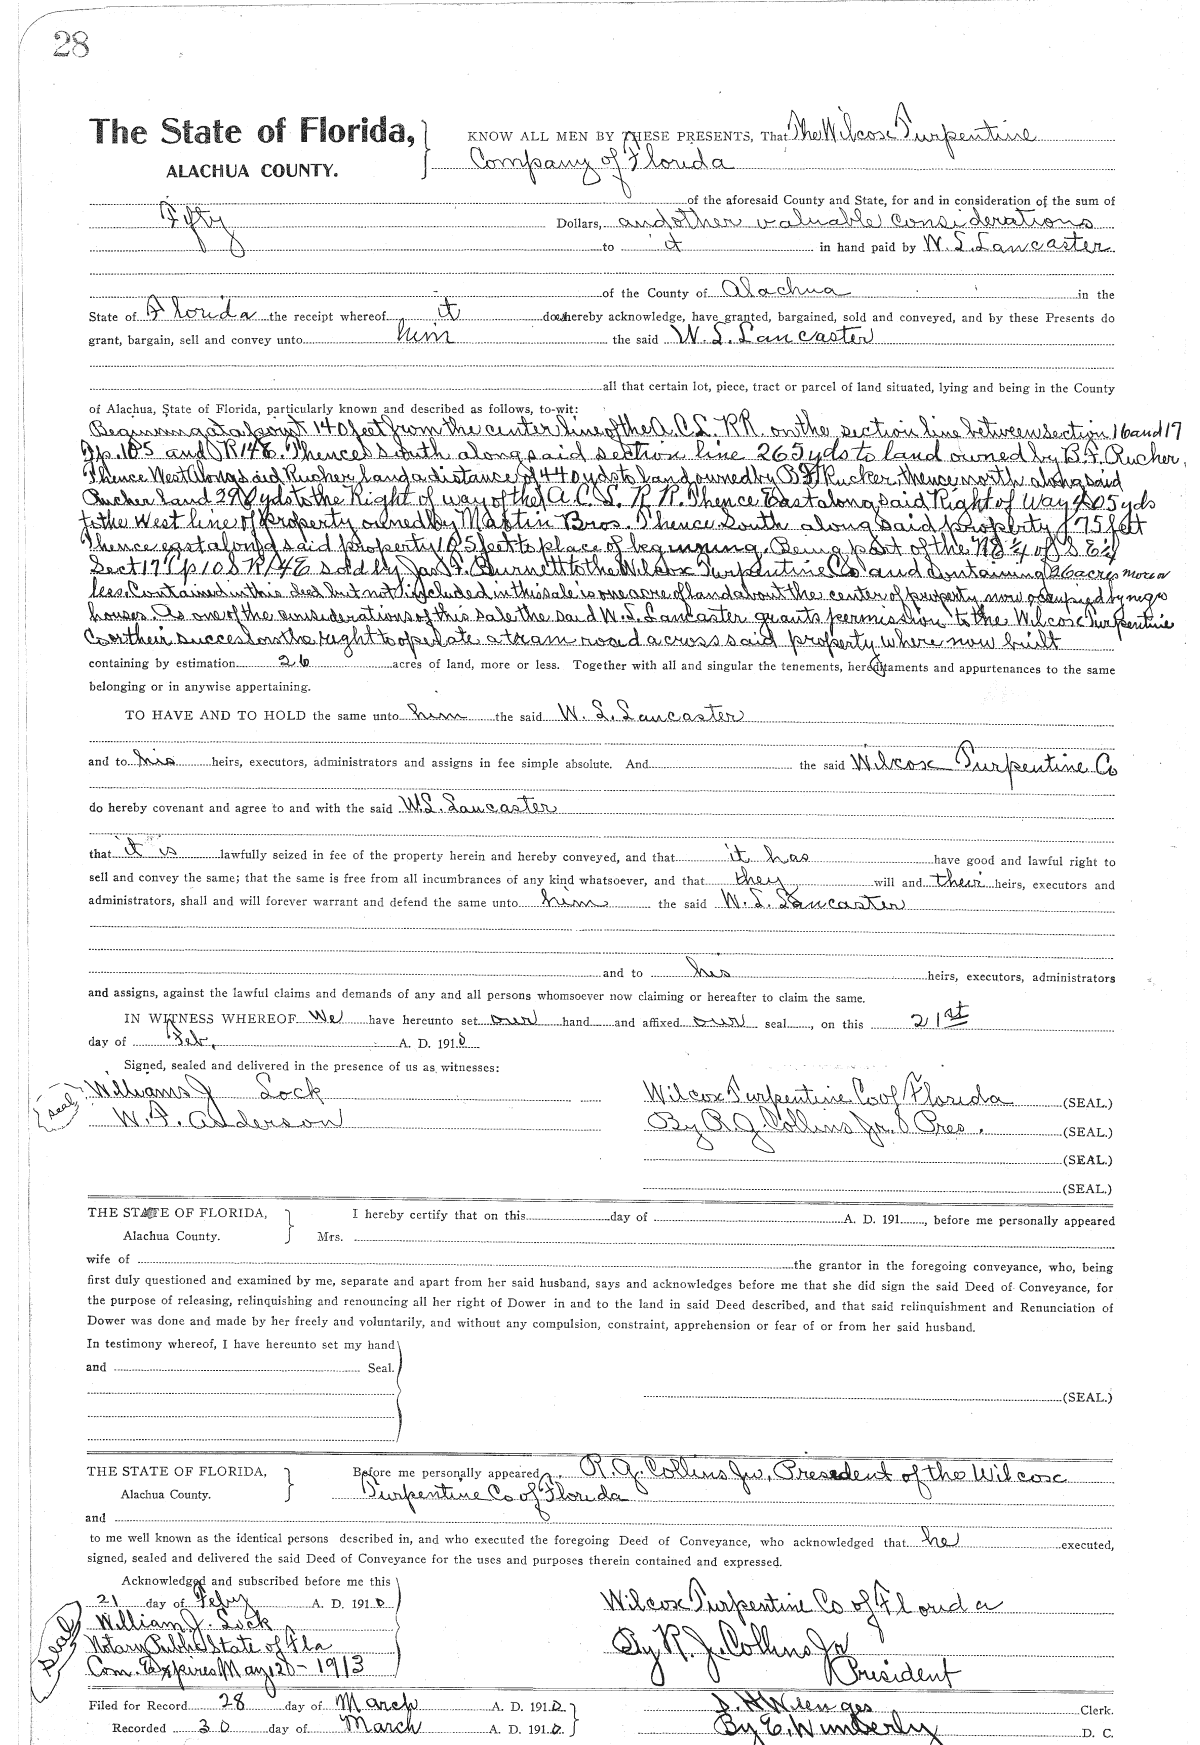 28
The State of Florida,
ALACHUA COUNTY.
KNOW ALL MEN BY THESE PRESENTS, That The Wilcox Turpentine
Company of Florida
of the aforesaid County and State, for and in consideration of the sum of
Fifty Dollars, and other valuable considerations
to it in hand paid by W. S. Lancaster
of the County of Alachua in the
State of Florida the receipt whereof it does hereby acknowledge, have granted, bargained, sold and conveyed, and by these Presents do
grant, bargain, sell and convey unto him the said W. S. Lancaster
all that certain lot, piece, tract or parcel of land situated, lying and being in the County
of Alachua, State of Florida, particularly known and described as follows, to-wit:
Beginning at a point 140 feet from the center line of the A. C. L. RR. on the section line between section 16 and 17
Tp. 10 S and R 14 E. Thence South along said section line 265 yds to land owned by B. F. Rucker,
Thence West along said Rucker land a distance of 440 yds to land owned by B F Rucker, thence north along said
Rucker land 290 yds to the Right of way of the A. C. L. R. R. Thence East along said Right of Way 405 yds
to the West line of property owned by Martin Bros. Thence South along said property 75 feet
Thence east along said property 105 feet to place of beginning. Being part of the N E ¼ of S. E ¼
Sect 17 Tp 10 S R 14 E sold by Jas. F. Burnett to the Wilcox Turpentine Co and containing 26 acres more or
less. Contained in this deed but not included in this sale is one acre of land about the center of property now occupied by negro
houses. As one of the considerations of this sale the said W. S. Lancaster grants permission to the Wilcox Turpentine
Co or their successors the right to operate a tram road across said property where now built
containing by estimation 26 acres of land, more or less. Together with all and singular the tenements, hereditaments and appurtenances to the same
belonging or in anywise appertaining.
TO HAVE AND TO HOLD the same unto him the said W. S. Lancaster
and to his heirs, executors, administrators and assigns in fee simple absolute. And the said Wilcox Turpentine Co
do hereby covenant and agree to and with the said W. S. Lancaster
that it is lawfully seized in fee of the property herein and hereby conveyed, and that it has have good and lawful right to
sell and convey the same; that the same is free from all incumbrances of any kind whatsoever, and that they will and their heirs, executors and
administrators, shall and will forever warrant and defend the same unto him the said W. S. Lancaster
and to his heirs, executors, administrators
and assigns, against the lawful claims and demands of any and all persons whomsoever now claiming or hereafter to claim the same.
IN WITNESS WHEREOF We have hereunto set our hand and affixed our seal, on this 21st
day of Feb, A. D. 1910
Signed, sealed and delivered in the presence of us as witnesses:
Williams J Lock Wilcox Turpentine Co of Florida (SEAL.)
seal
W. F. Anderson By R. J. Collins Jr. Pres. (SEAL.)
(SEAL.)
(SEAL.)
THE STATE OF FLORIDA, I hereby certify that on this day of A. D. 191, before me personally appeared
Alachua County. Mrs.
wife of the grantor in the foregoing conveyance, who, being
first duly questioned and examined by me, separate and apart from her said husband, says and acknowledges before me that she did sign the said Deed of Conveyance, for
the purpose of releasing, relinquishing and renouncing all her right of Dower in and to the land in said Deed described, and that said relinquishment and Renunciation of
Dower was done and made by her freely and voluntarily, and without any compulsion, constraint, apprehension or fear of or from her said husband.
In testimony whereof, I have hereunto set my hand
and Seal.
(SEAL.)
THE STATE OF FLORIDA, Before me personally appeared R. J. Collins Jr, President of the Wilcox
Alachua County. Turpentine Co of Florida
and
to me well known as the identical persons described in, and who executed the foregoing Deed of Conveyance, who acknowledged that he executed,
signed, sealed and delivered the said Deed of Conveyance for the uses and purposes therein contained and expressed.
Acknowledged and subscribed before me this
21 day of Feby A. D. 1910 Wilcox Turpentine Co of Florida
William J. Lock
Seal
Notary Public State of Fla By R. J. Collins Jr
Com. Expires May 20 - 1913 President
Filed for Record 28 day of March A. D. 1910 S. H. Wienges Clerk.
Recorded 30 day of March A. D. 1910. By E. Wimberly D. C.